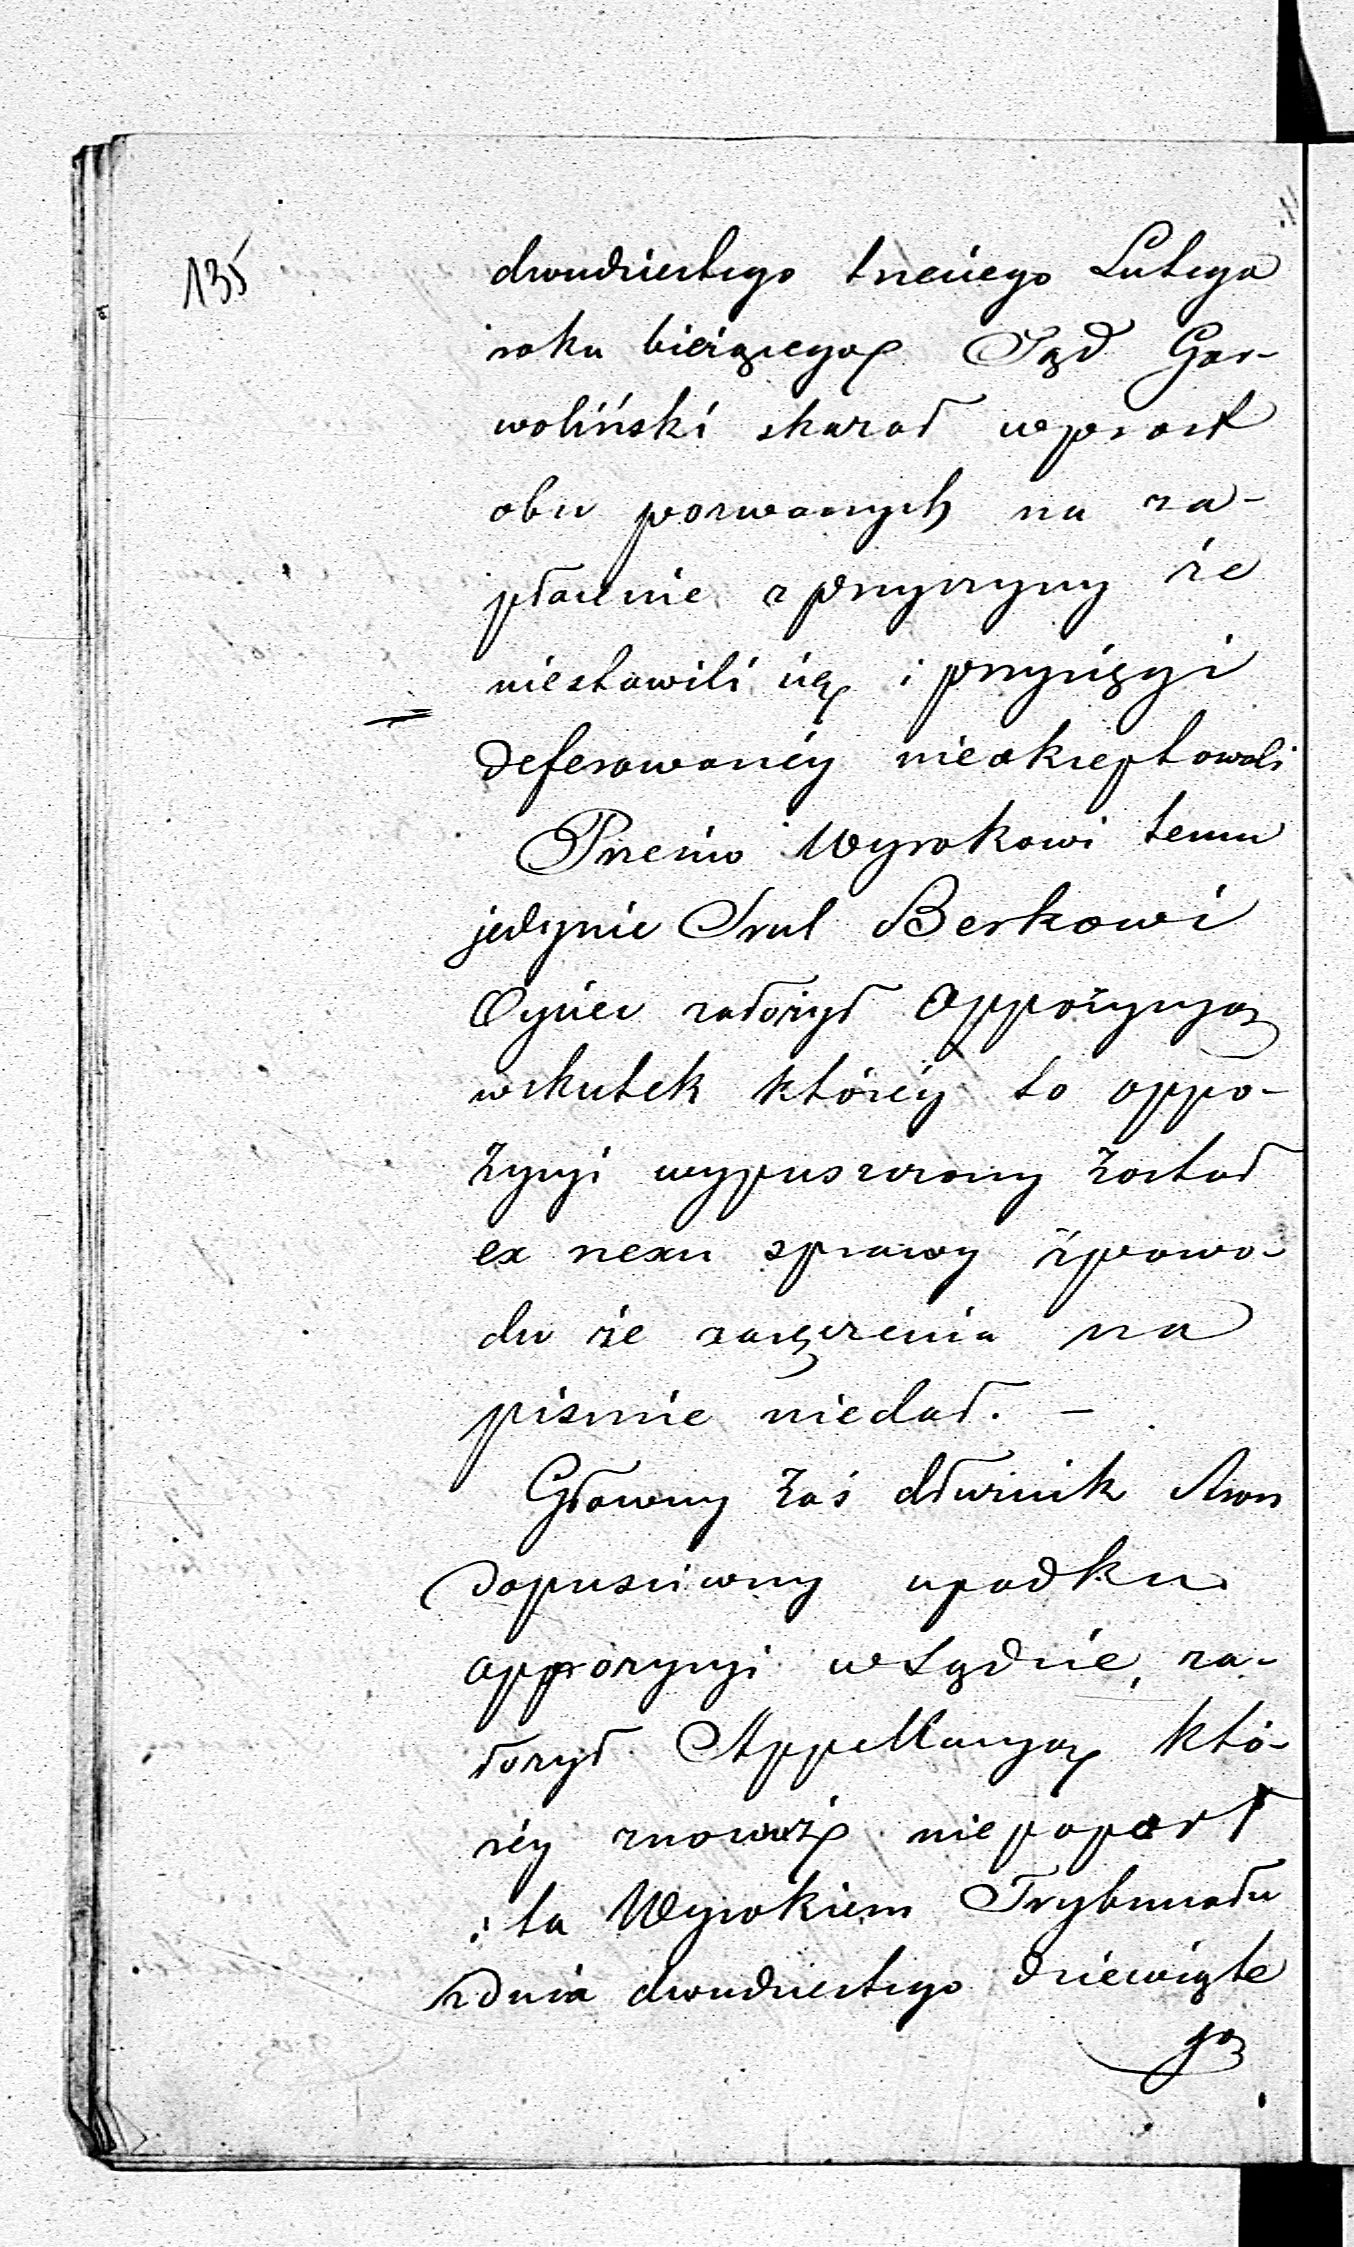 135
dwudziestego trzeciego Lutego
roku bieżącego Sąd Gar-
woliński skazał wprost
obu pozwanych na za-
płacenie z przyczyny że
niestawili się i przysięgi
deferowanéy nieakceptowali
Przeciw Wyrokowi temu
jedynie Srul Berkowi
Oyciec założył Oppozycyą
wskutek któréy to oppo-
zycyi wypuszczony został
ex nexu sprawy zpowo-
du że zaręczenia na
piśmie niedał. –
Głowny zaś dłużnik Aron
dopuściwszy upadku
oppozycyi w Sądzie, za-
łożył Appellacyą któ-
réy znowuż niepoparł
i ta Wyrokiem Trybunału
zdnia dwudziestego dziewiąte
go